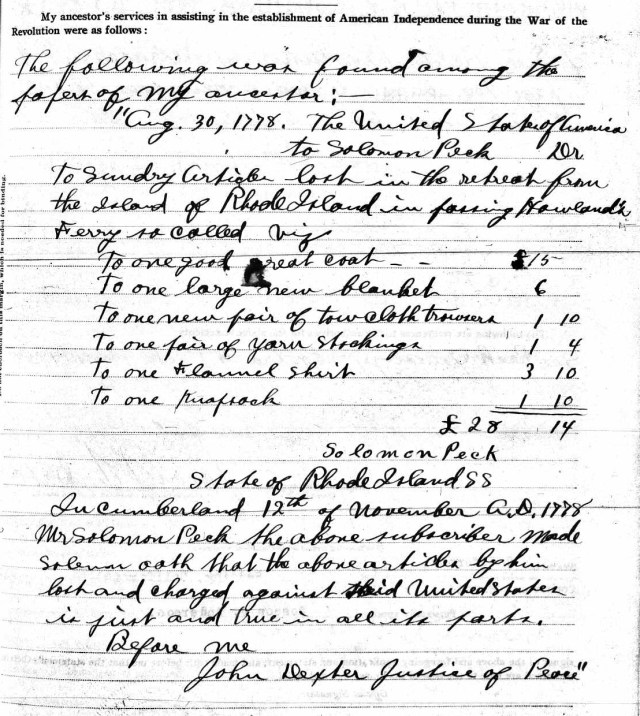 My ancestor's services in assisting in the establishment of American Independence during the War of the
Revolution were as follows:
The following was found among the
papers of my ancestor:—
"Aug. 30, 1778. The United State of America
to Solomon Peck Dr
To Sundry Articles lost in the retreat from
the Island of Rhode Island in passing Howland's
Ferry so called viz
To one good great coat — — £15
To one large new blanket 6
To one new pair of tow cloth trowsers 1 10
To one pair of yarn stockings 1 4
To one flannel shirt 3 10
To one Knapsack 1 10
£ 28 14
Solomon Peck
State of Rhode Island SS
In Cumberland 12th of November A.D. 1778
Mr Solomon Peck the above subscriber made
solemn oath that the above articles by him
lost and charged against said United States
is just and true in all its parts.
Before me
John Dexter Justice of Peace"